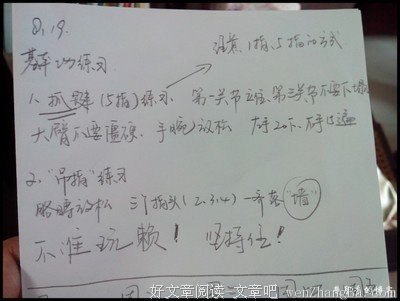 8.19.
注意1指、5指的方式
基本功练习
1、抓键(5指)练习 第一关节立住、第三关节不要下塌
大臂不要僵硬、手腕放松 右手20下、左手15遍
2、"吊指"练习
胳膊放松 三个指头(2.3.4)一齐落"墙"
不准玩赖! 坚持住!
好文章阅读-文章吧-wenzhangba.com